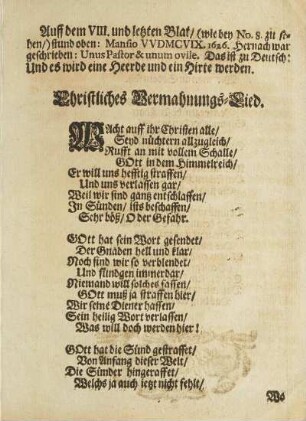 Auff dem VIII. und letzten Blat/ (wie bey No. 8. zu se-
hen/) stund oben: Mansio VVDMCVIX. 1626. Hernach war
geschrieben: Unus Pastor & unum ovile. Das ist zu Deutsch:
Und es wird eine Heerde und ein Hirte werden.
Christliches Vermahnungs-Lied.
WAcht auff ihr Christen alle/
Seyd nüchtern allzugleich/
Rufft an mit vollem Schalle/
GOtt in dem Himmelreich/
Er will uns hefftig straffen/
Und uns verlassen gar/
Weil wir sind gantz entschlaffen/
In Sünden/ ists beschaffen/
Sehr böß/ O der Gefahr.
GOtt hat sein Wort gesendet/
Der Gnaden hell und klar/
Noch sind wir so verblendet/
Und sündgen immerdar/
Niemand will solches fassen/
GOtt muß ja straffen hier/
Wir seine Diener hassen/
Sein heilig Wort verlassen/
Was will doch werden hier!
GOtt hat die Sünd gestraffet/
Von Anfang dieser Welt/
Die Sünder hingeraffet/
Welchs ja auch jetzt nicht fehlt/
Wo